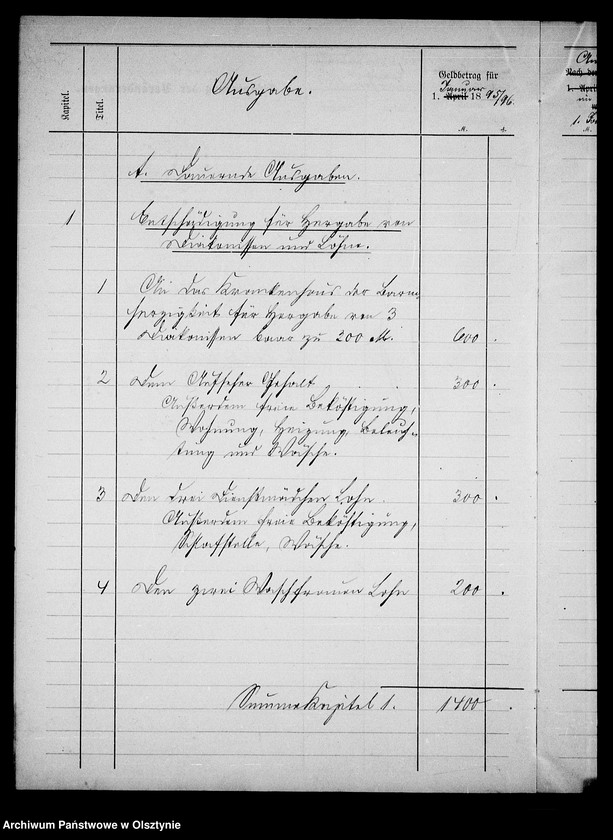 Kapitel.
Titel.
Ausgabe.
Geldbetrag für
Januar
1. April 18 95/96.
M.
A. Dauernde Ausgaben.
1 Entschädigung für Hergabe von
Diakonissen und Löhne.
1 An das Krankenhaus der Barm-
herzigkeit für Hergabe von 3
Diakonissen baar zu 200 M. 600 .
2 Dem Aufseher Gehalt . . 300 .
Außerdem freie Beköstigung,
Wohnung, Heizung, Beleuch-
tung und Wäsche.
3 Den drei Dienstmädchen Lohn . 300 .
Außerdem freie Beköstigung,
Schlafstelle, Wäsche.
4 Den zwei Waschfrauen Lohn 200 .
Summe Kapitel 1. 1400 .
Nach der
1. April
M.
Archiwum Państwowe w Olsztynie